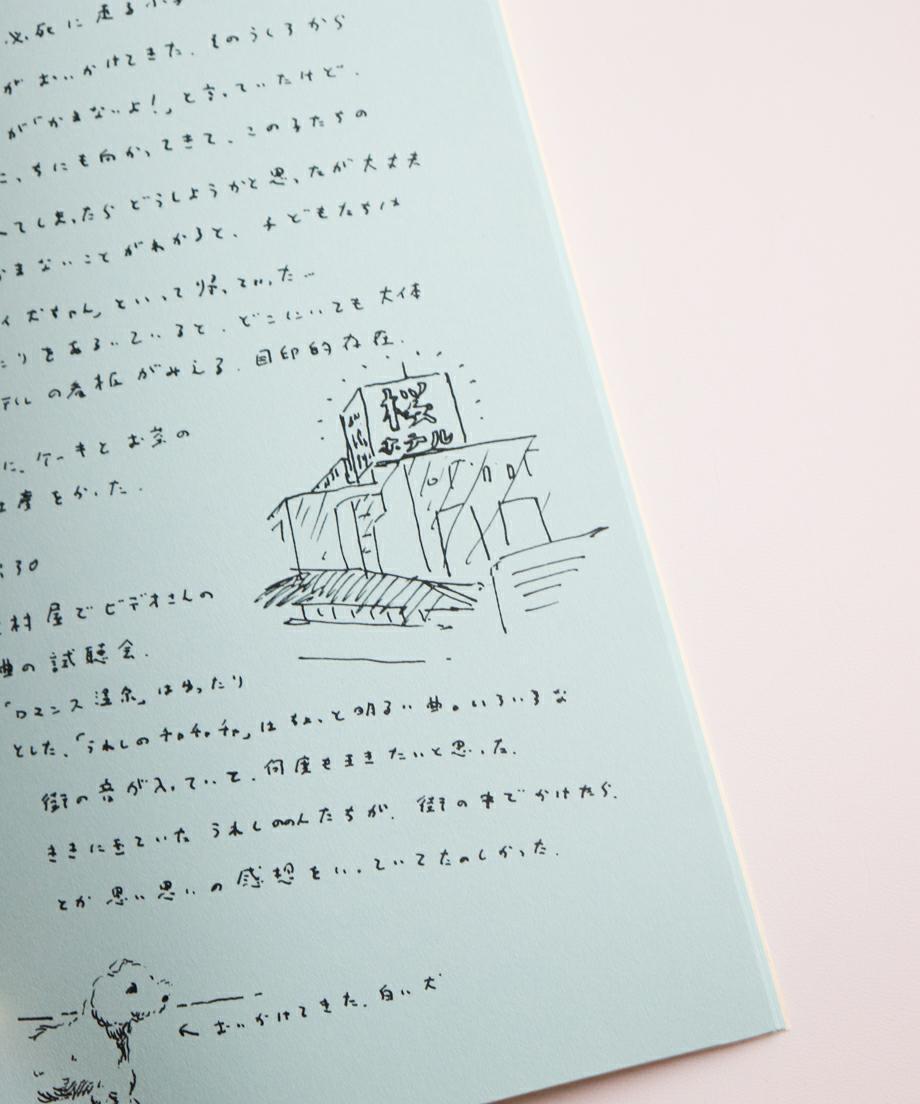 必死に走る
がおいかけてきた。そのうしろから
が「かまないよ!」と言っていたけど、
こっちにも向かってきて、この子たちの
てしまったらどうしようかと思ったが大丈夫
かまないことがわかると、子どもたちは
イ犬ちゃん」といって帰っていった…
りをあるいていると、どこにいても大体
テルの看板がみえる。目印的存在。
桜
ホテル
に、ケーキとお茶の
産をかった。
:30
村屋でビデオさんの
曲の試聴会。
「ロマンス温泉」はゆったり
とした、「うれしのチャチャチャ」はちょっと明るい曲。いろいろな
街の音が入っていて、何度もききたいと思った。
ききにきていたうれしのの人たちが、街の中でかけたら、
とか思い思いの感想をいっていてたのしかった。
← おいかけてきた、白い犬